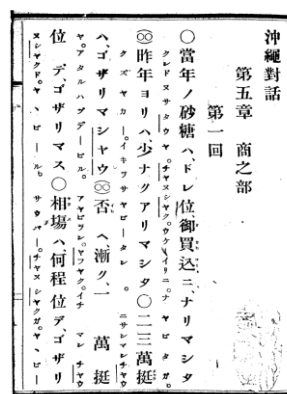 沖繩對話
第五章 商之部
第一回
○當年ノ砂糖ハ、ドレ位、御買込ニ、ナリマシタ
クレドヌサタウヤ。チヤヌシヤク。ウケイリニ。ナヤビタガ。
◎昨年ヨリハ、少ナクアリマシタ○二三萬挺
クズヤカー。イキラサヤビータレ。ニサンマンチヤウ
ハ、ゴザリマシヤウ◎否ヘ漸ク、一萬挺
ヤ。アタルハヅデービル。アヤビラン。ヤウヤク。イチマンチヤウ
位デ、ゴザリマス○相場ハ、何程位デ、ゴザリ
ヌシヤクド。ヤヽビール。サウバー。チヤヌシヤクガ。ヤヽビー